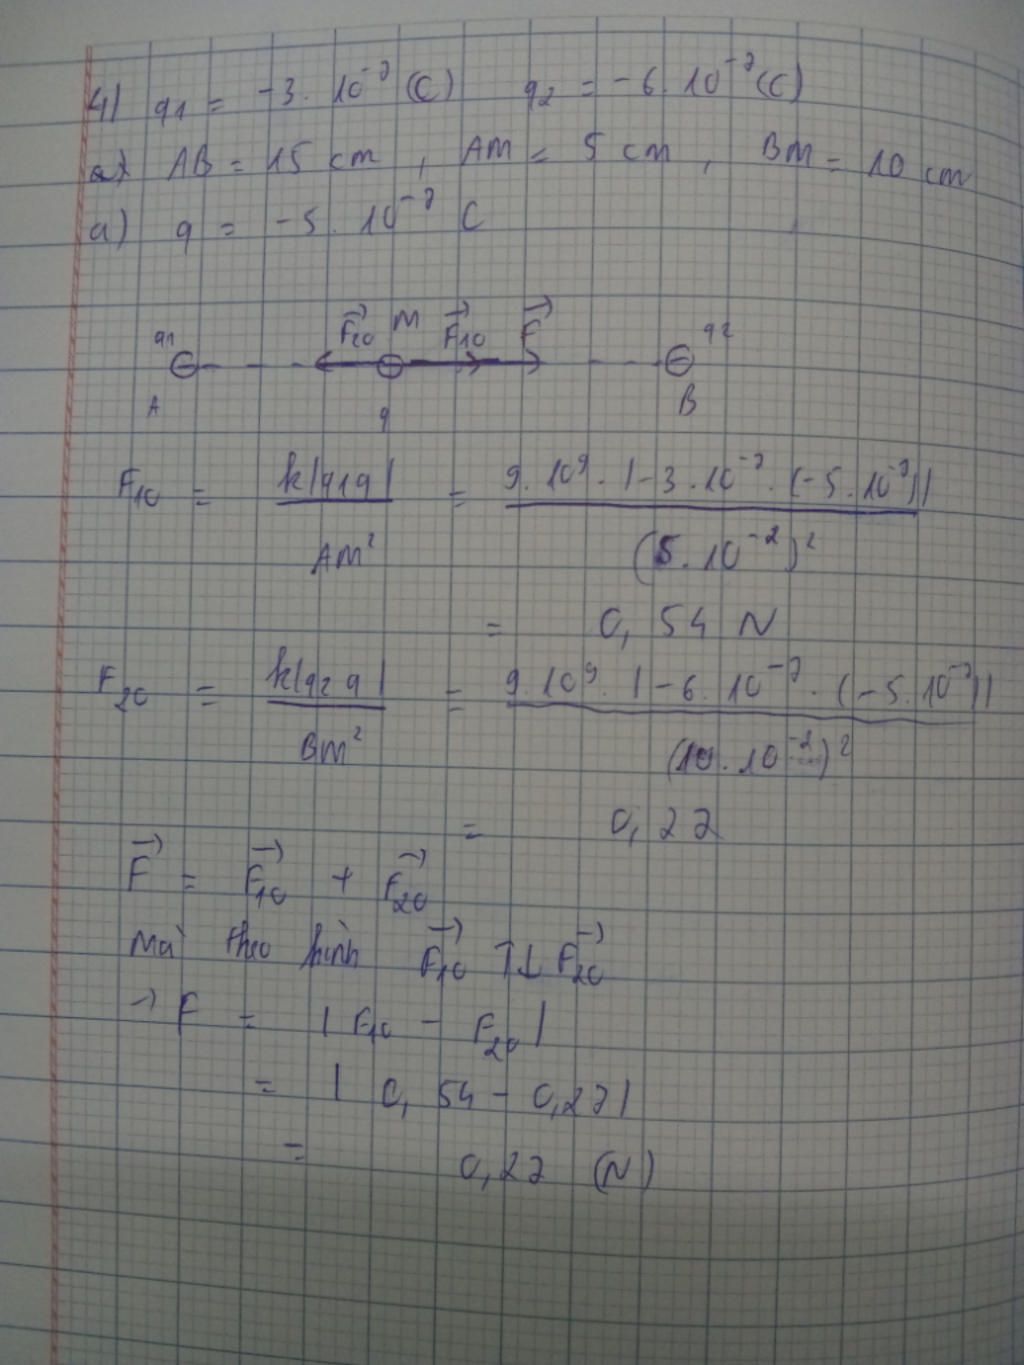 4) q1 = -3. 10⁻⁷ (C) q2 = -6. 10⁻⁷ (C)
a) AB = 15 cm , AM = 5 cm , BM = 10 cm
a) q = -5. 10⁻⁷ C
q1 F⃗20 M F⃗10 F⃗ q2
A q B
F10 = k|q1q| / AM² = 9. 10⁹. |-3. 10⁻⁷. (-5. 10⁻⁷)| / (5. 10⁻²)²
= 0,54 N
F20 = k|q2q| / BM² = 9. 10⁹. |-6. 10⁻⁷. (-5. 10⁻⁷)| / (10. 10⁻²)²
= 0,27
F⃗ = F⃗10 + F⃗20
Mà theo hình F⃗10 ↑↓ F⃗20
→ F = |F10 - F20|
= |0,54 - 0,27|
= 0,27 (N)